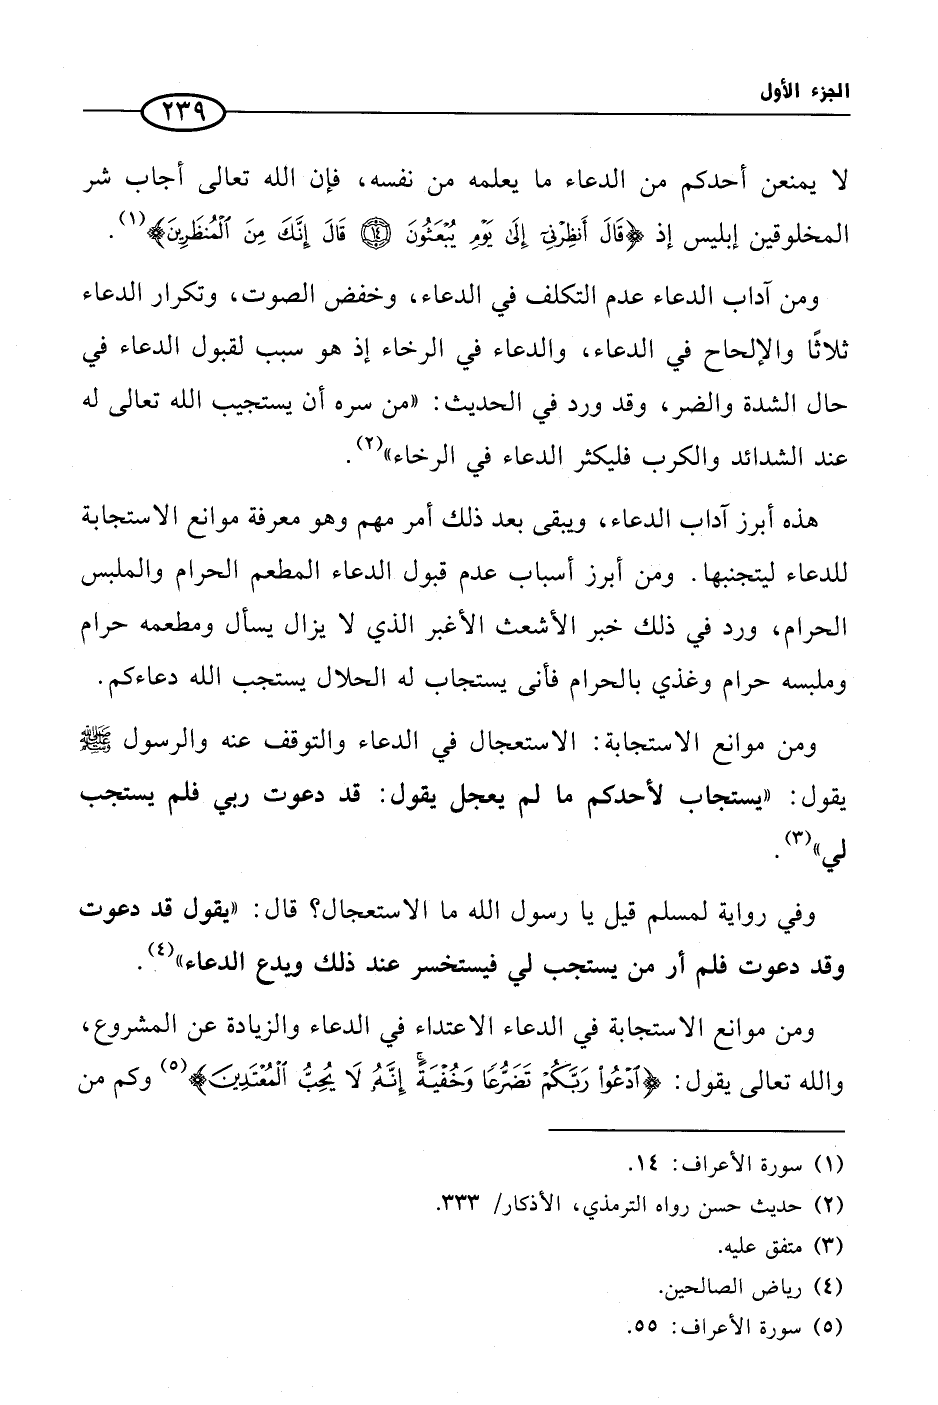 الجزء الأول
٢٣٩
لا يمنعن أحدكم من الدعاء ما يعلمه من نفسه، فإن الله تعالى أجاب شر
المخلوقين إبليس إذ ﴿قَالَ أَنظِرْنِىٓ إِلَىٰ يَوْمِ يُبْعَثُونَ ۝١٤ قَالَ إِنَّكَ مِنَ ٱلْمُنظَرِينَ﴾(١).
ومن آداب الدعاء عدم التكلف في الدعاء، وخفض الصوت، وتكرار الدعاء
ثلاثًا والإلحاح في الدعاء، والدعاء في الرخاء إذ هو سبب لقبول الدعاء في
حال الشدة والضر، وقد ورد في الحديث: «من سره أن يستجيب الله تعالى له
عند الشدائد والكرب فليكثر الدعاء في الرخاء»(٢).
هذه أبرز آداب الدعاء، ويبقى بعد ذلك أمر مهم وهو معرفة موانع الاستجابة
للدعاء ليتجنبها. ومن أبرز أسباب عدم قبول الدعاء المطعم الحرام والملبس
الحرام، ورد في ذلك خبر الأشعث الأغبر الذي لا يزال يسأل ومطعمه حرام
وملبسه حرام وغذي بالحرام فأنى يستجاب له الحلال يستجب الله دعاءكم.
ومن موانع الاستجابة: الاستعجال في الدعاء والتوقف عنه والرسول ﷺ
يقول: «يستجاب لأحدكم ما لم يعجل يقول: قد دعوت ربي فلم يستجب
لي»(٣).
وفي رواية لمسلم قيل يا رسول الله ما الاستعجال؟ قال: «يقول قد دعوت
وقد دعوت فلم أر من يستجب لي فيستخسر عند ذلك ويدع الدعاء»(٤).
ومن موانع الاستجابة في الدعاء الاعتداء في الدعاء والزيادة عن المشروع،
والله تعالى يقول: ﴿ٱدْعُوا۟ رَبَّكُمْ تَضَرُّعًا وَخُفْيَةً ۚ إِنَّهُۥ لَا يُحِبُّ ٱلْمُعْتَدِينَ﴾(٥) وكم من
(١) سورة الأعراف: ١٤.
(٢) حديث حسن رواه الترمذي، الأذكار/ ٣٣٣.
(٣) متفق عليه.
(٤) رياض الصالحين.
(٥) سورة الأعراف: ٥٥.